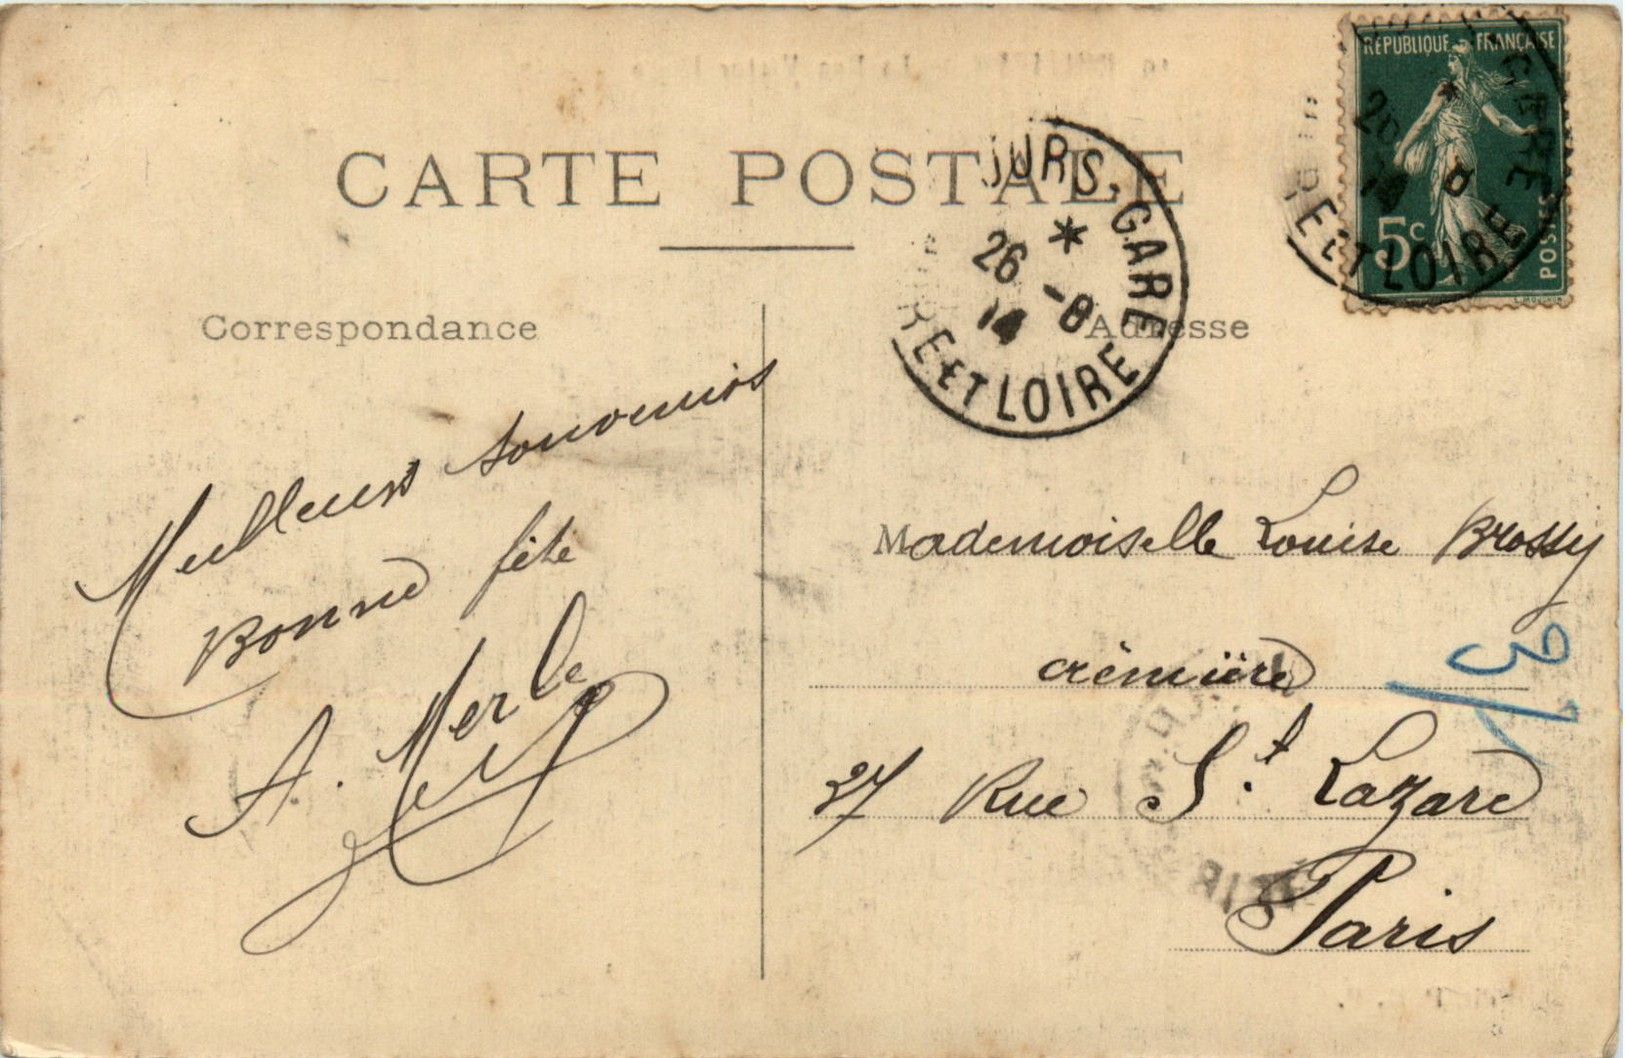 CARTE POSTALE
Correspondance
Adresse
RÉPUBLIQUE FRANÇAISE
5c
POSTES
JURS-GARE
*
26 -8
14
RE ET LOIRE
GARE
*
ET LOIRE
Meilleurs souvenirs
Bonne fête
A. Merle
Mademoiselle Louise Brossy
crémière
27 Rue St. Lazare
Paris